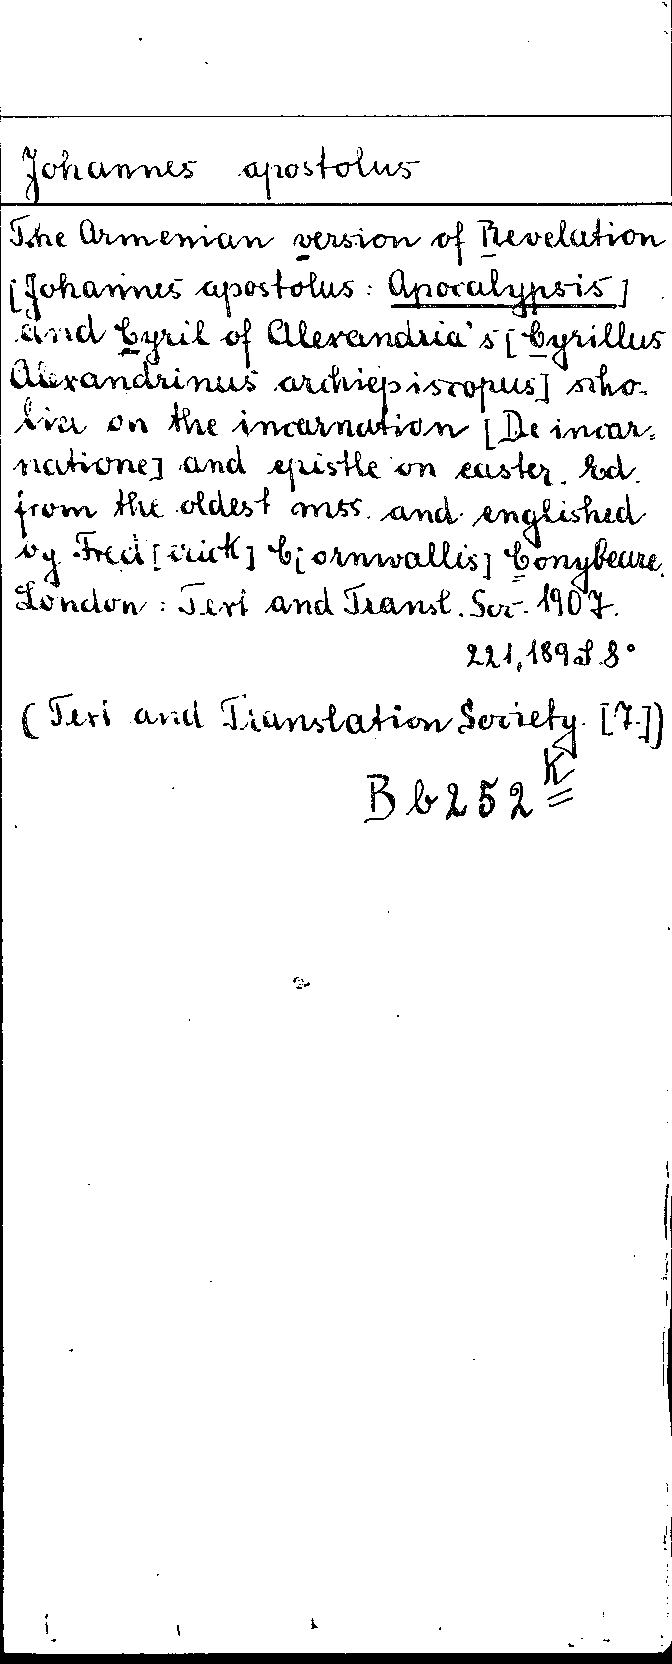 Johannes apostolus
The Armenian version of Revelation
[Johannes apostolus: Apocalypsis]
and Cyril of Alexandria's [Cyrillus
Alexandrinus archiepiscopus] scho-
lia on the incarnation [De incar-
natione] and epistle on easter. Ed.
from the oldest mss. and englished
by Fred[erick] C[ornwallis] Conybeare.
London: Text and Transl. Soc. 1907.
221, 189 S. 8°
(Text and Translation Society. [7.])
Bb 252 K